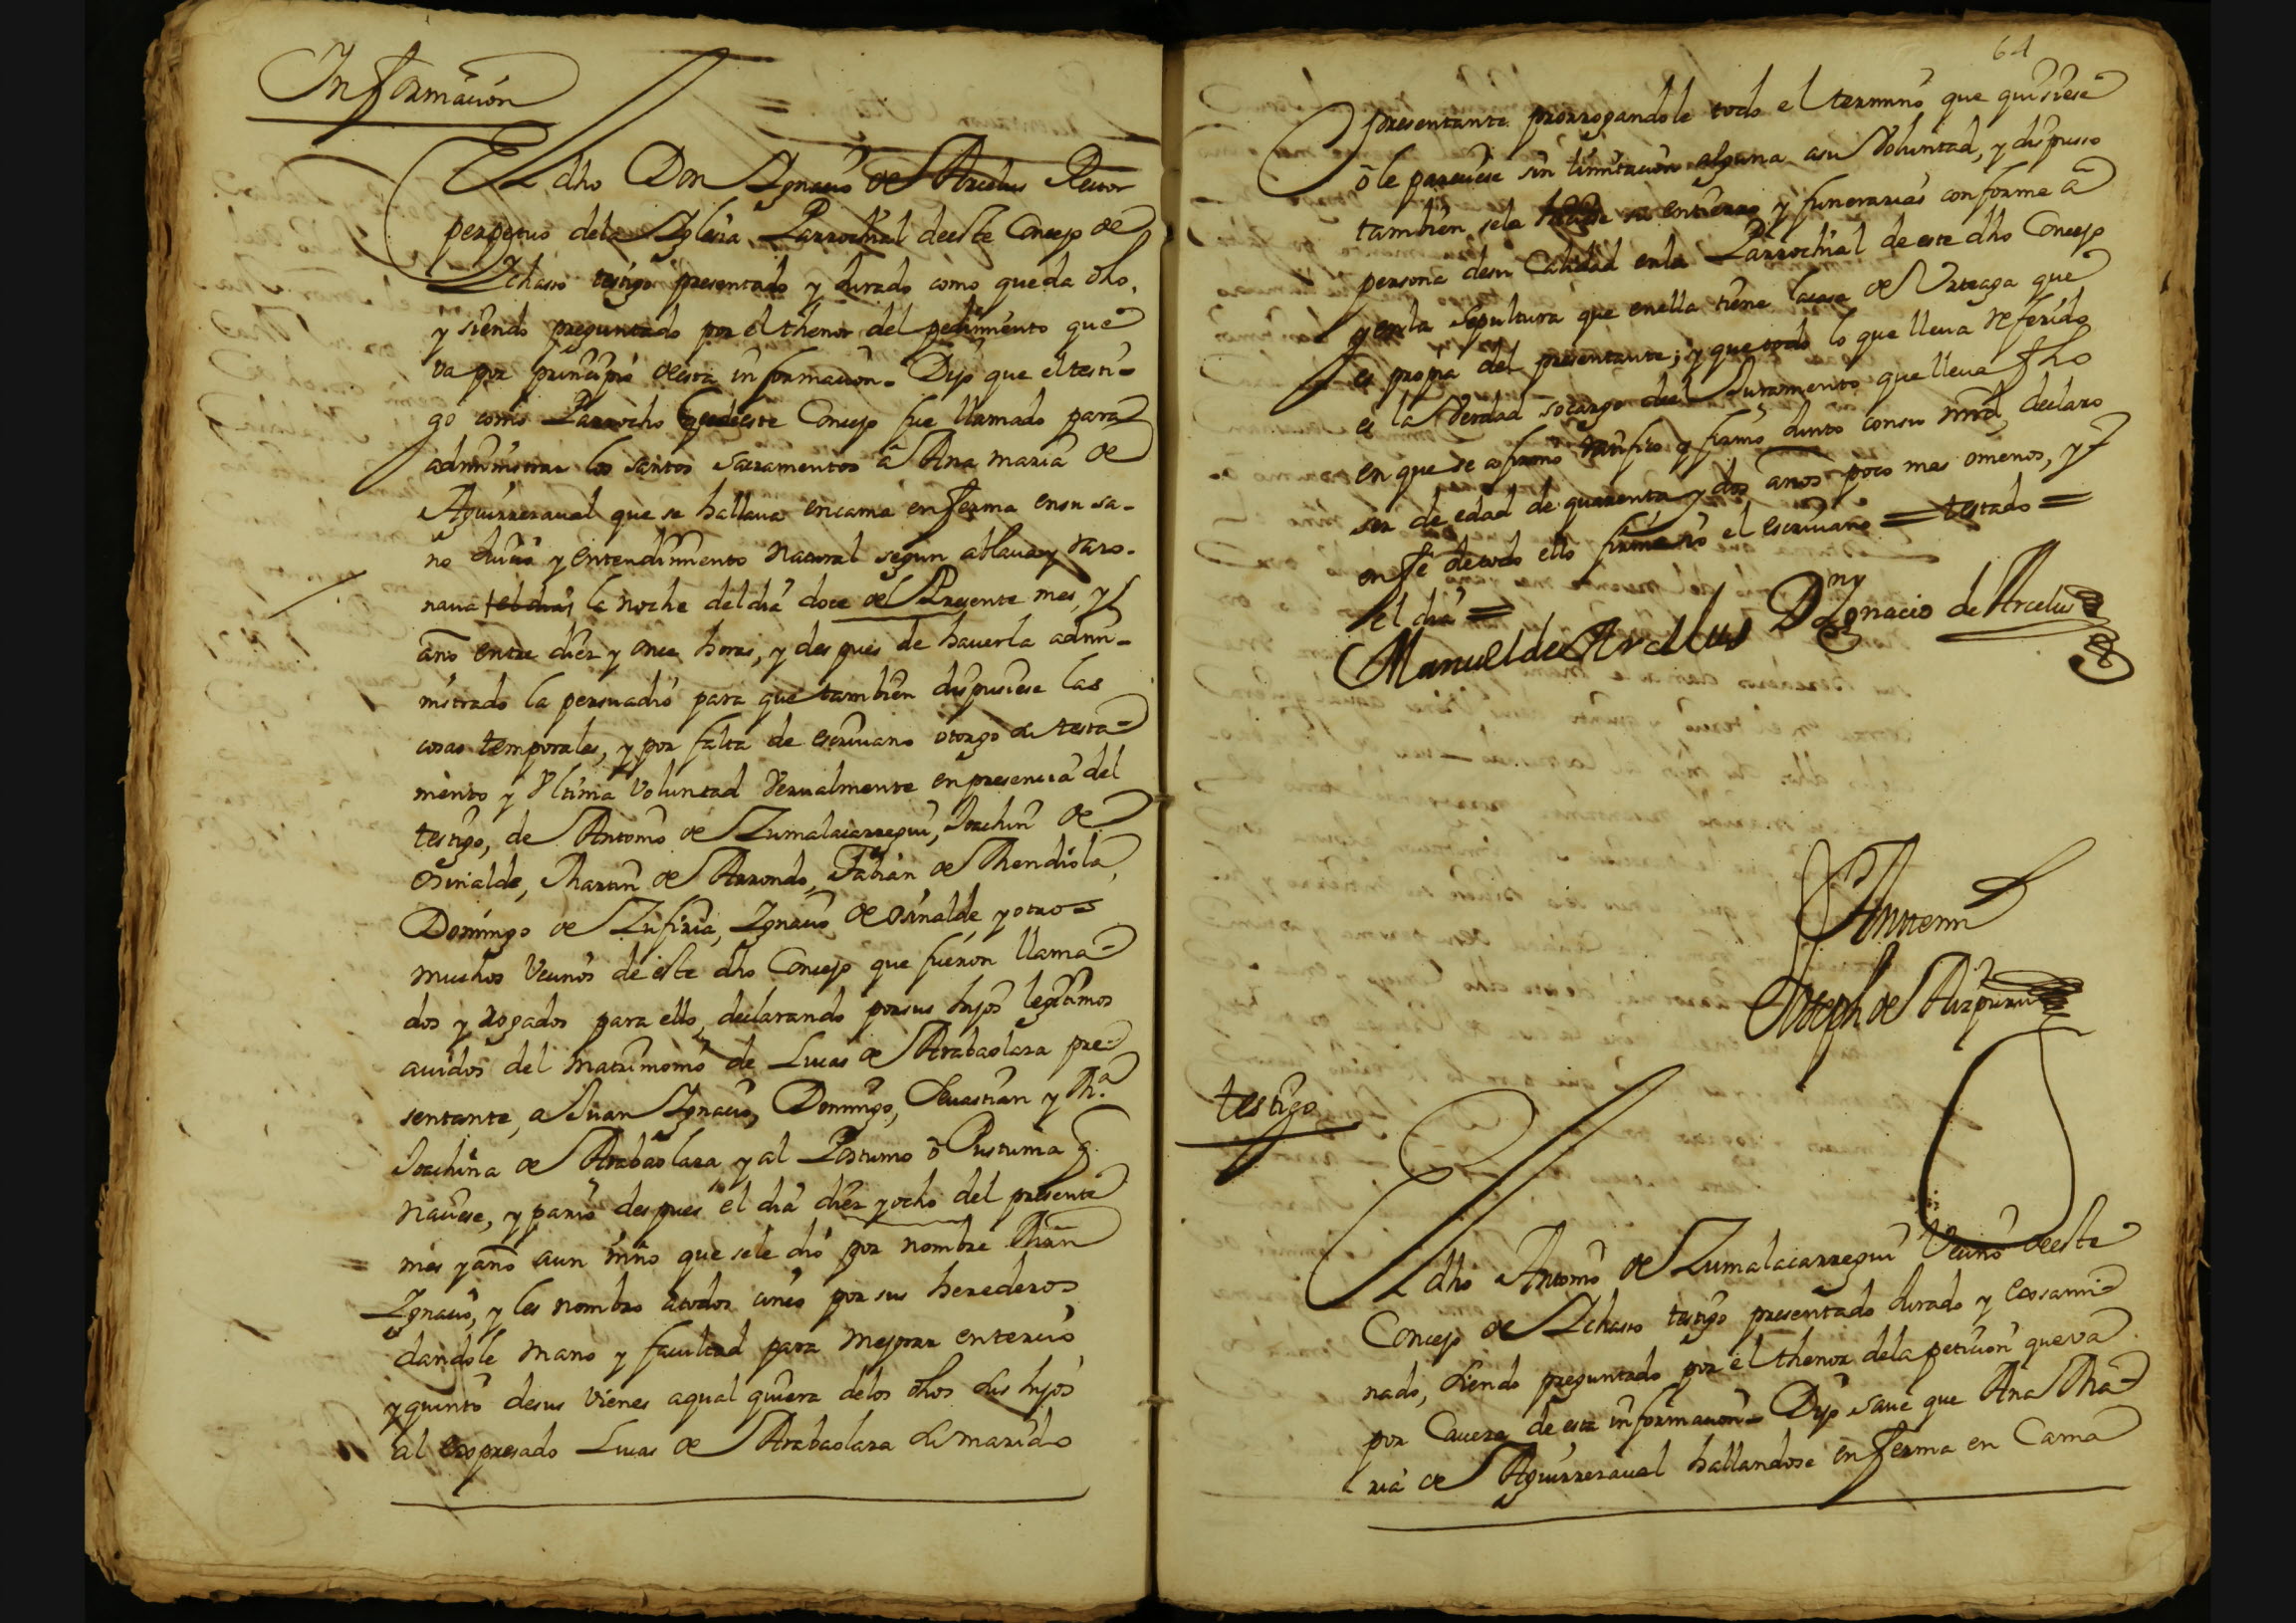 Informacion
El dho Don Ignacio de Arcelus Rector
perpetuo dela Iglesia Parrochial deeste Concejo de
Ichasso testigo presentado y Jurado como queda dho,
y siendo preguntado por el thenor del pedimiento que
va por principio deesta informacion = Dijo que el testi-
go como Parrocho deeste Concejo fue llamado para
administrar los santos sacramentos â Ana maria de
Aguirrezaual que se hallaua encama enferma ensu sa-
no Juicio y entendimiento natural segun ablaua y razo-
naua el dia, la noche del dia doce del Presente mes, y
año entre diez y once horas, y despues de hauerla admi-
nistrado la persuadio para que tambien dispusiese las
cosas temporales, y por falta de escriuano otorgo su testa-
mento y Vltima Voluntad Verualmente en presencia del
testigo, de Antonio de Zumalacarregui, Joachin de
Osinalde, Martin de Arrondo, Fabian de Mendiola,
Domingo de Zufiria, Ignacio de Osinalde, y otros
muchos Vecinos de este dho Concejo que fueron llama-
dos y rogados para ello, declarando por sus hijos legitimos
auidos del matrimonio de Lucas de Arabaolaza pre-
sentante, a Juan Ignacio, Domingo, Seuastian y Ma.
Joachina de Arabaolaza y al Postumo ô Pustuma q
naciese, y pario despues el dia diez y ocho del presente
mes y año aun niño que sele dio por nombre Mrn
Ignacio, y les nombro atodos cinco por sus herederos
dandole mano y facultad para mejorar entercio
y quinto desus vienes aqual quiera delos dhos sus hijos
al expresado Lucas de Arabaolaza su marido
64
presentante prorrogandole todo el termino que quisiese
ô le pareciese sin limitacion alguna asu Voluntad, y dispuso
tambien sele su entierro y funerarias conforme â
persona desu Calidad enla Parrochial de este dho Concejo
y enla sepultura que enella tiene lacasa de Vrteaga que
es propia del presentante; y que todo lo que lleua referido
es la Verdad socargo del Juramento que lleua fho
en que se afirmo ratifico y firmo Junto con su mrd, declaro
ser de edad de quarenta y dos años poco mas omenos, y
enfe detodo ello firme yo el escriuano = testado =
el dia =
Manuel de Arcelus Dn Ygnacio de Arcelus
Antemi
Joseph de Aizpuru
testigo
El dho Antonio de Zumalacarregui Vecino deeste
Concejo de Ichasso testigo presentado Jurado y exsami-
nado, siendo preguntado por el thenor dela peticion que va
por Caueza de esta informacion = Dijo saue que Ana Ma-
ria de Aguirrezaual hallandose enferma en Cama